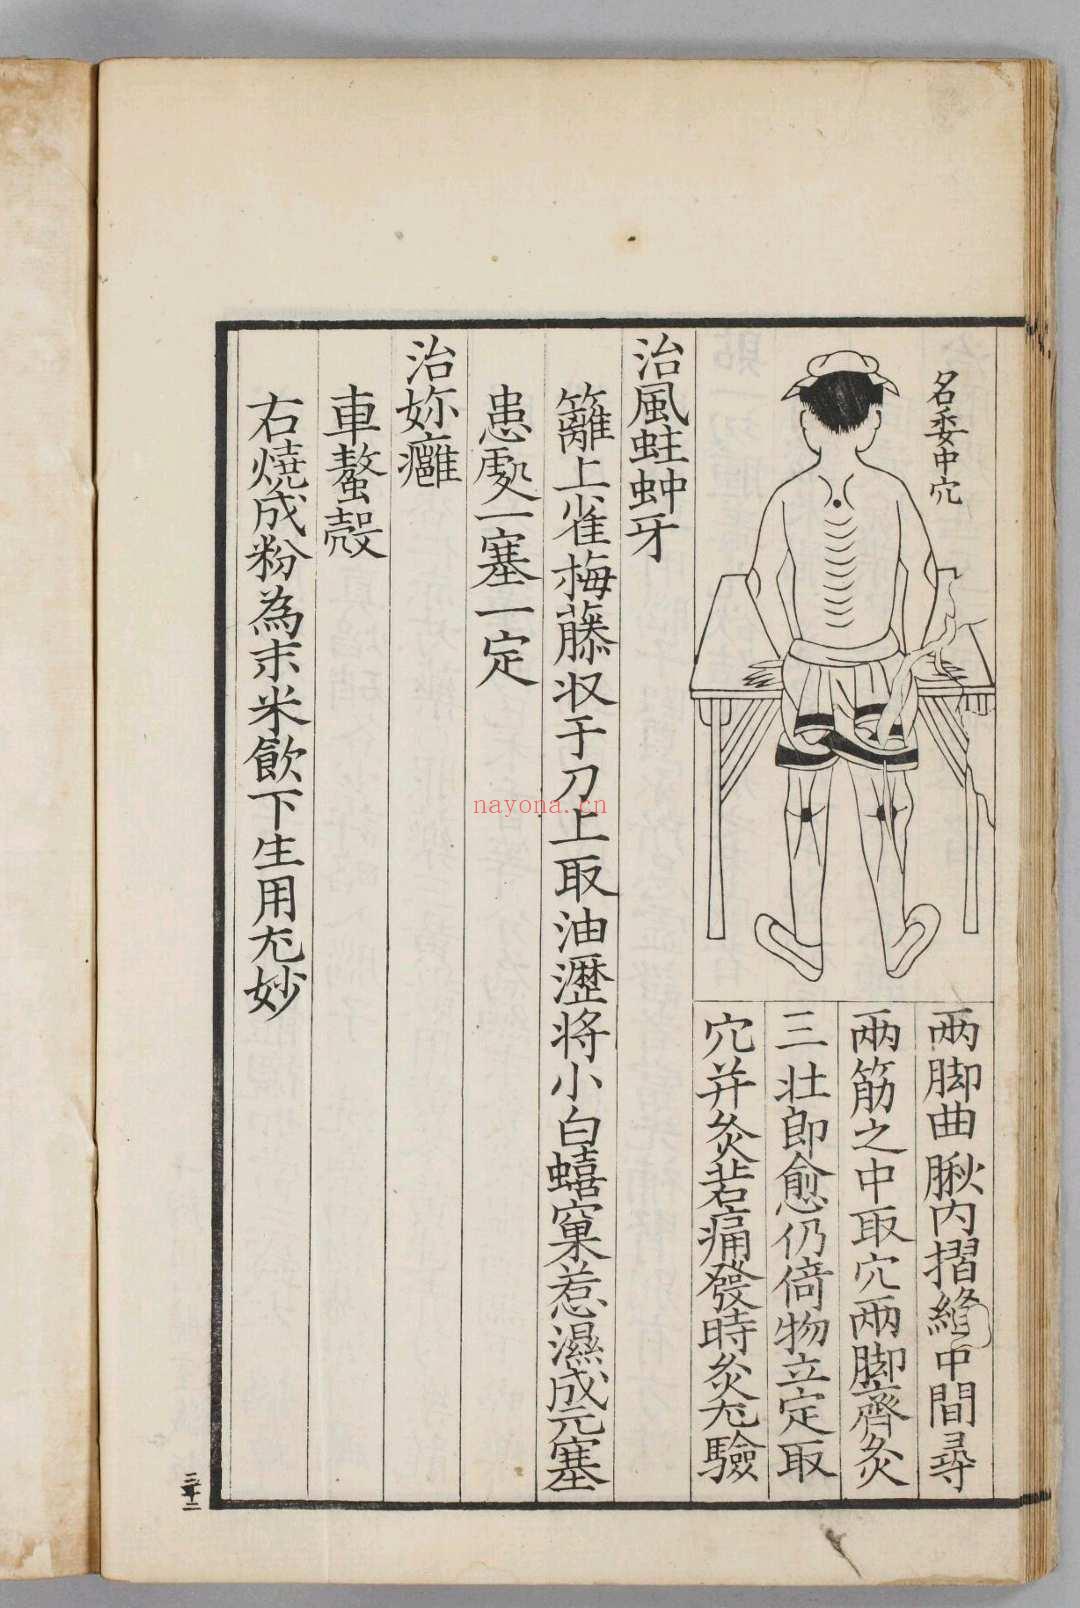 名委中穴
兩脚曲脉内摺縫中間尋
兩筋之中取穴兩脚齊灸
三壮即愈仍倚物立定取
穴并灸若痛發時灸尤驗
治風蛀蚛牙
籬上雀梅藤収于刀上取油瀝将小白蟢窠惹濕成元塞
患處一塞一定
治妳癰
車螯殼
右燒成粉為末米飲下生用尤妙
nayona.cn